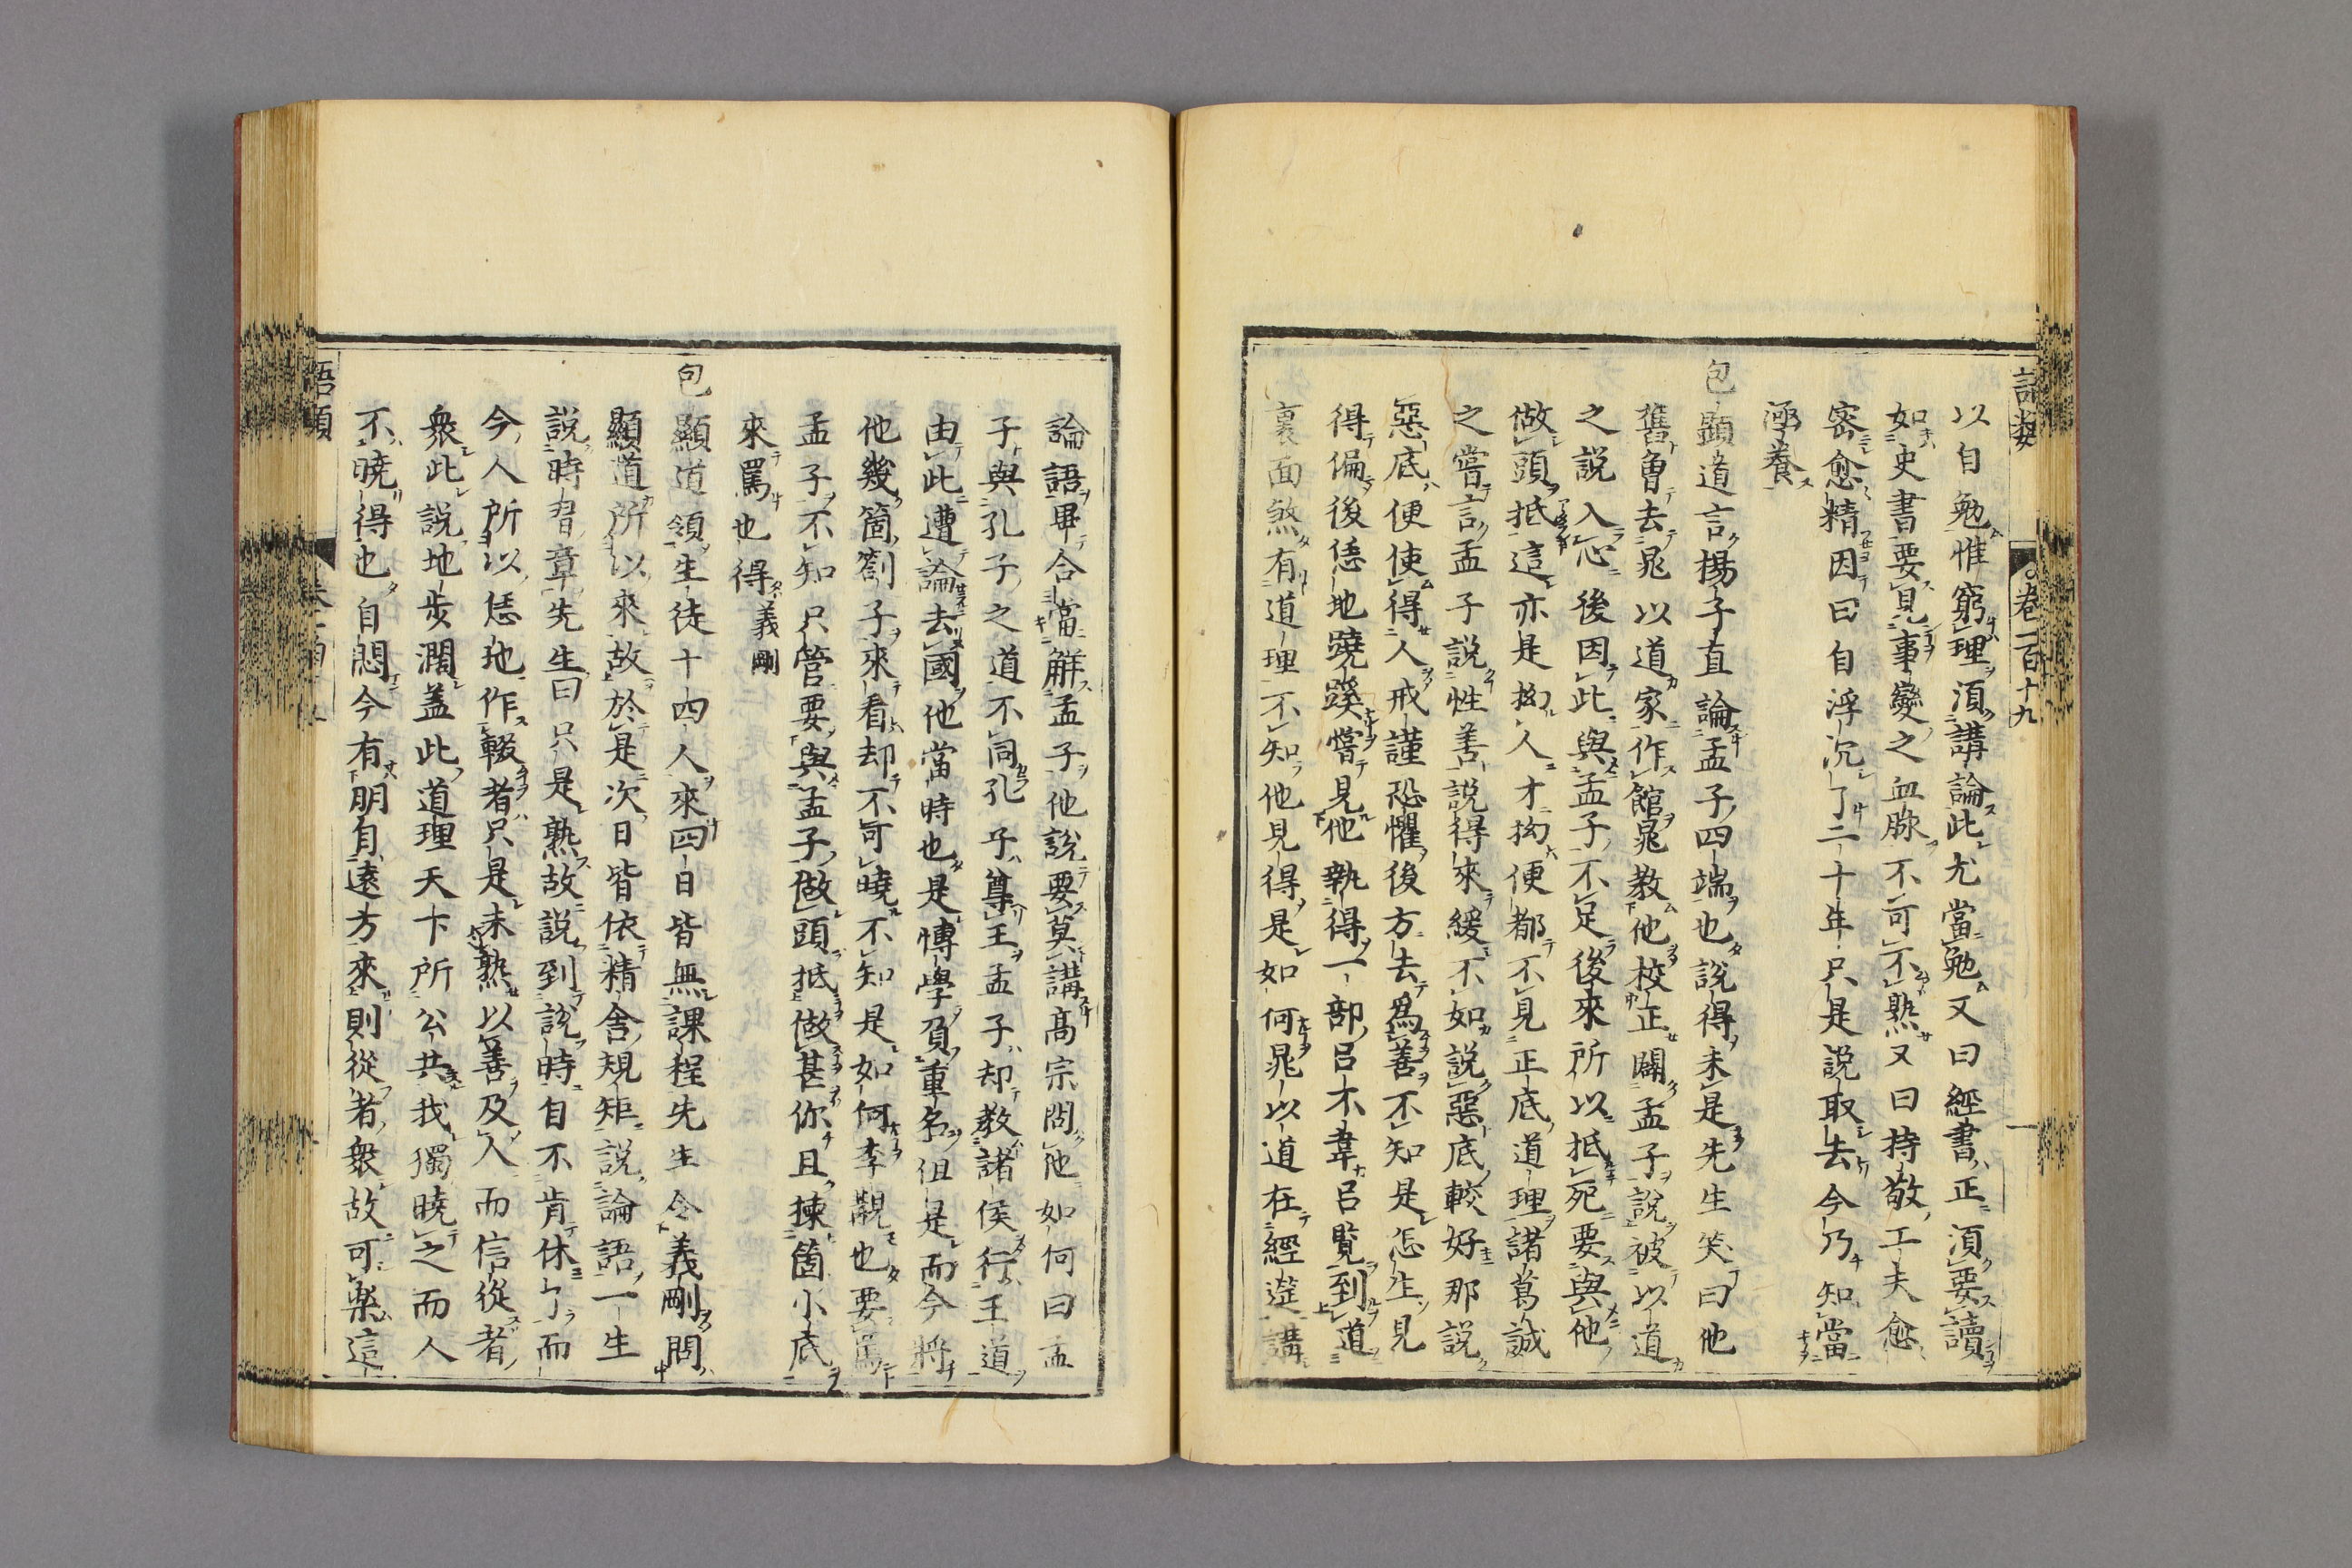 語類 卷一百十九 一
以自勉惟窮理須講論此尤當勉又曰經書正須要讀
如史書要見事變之血脉不可不熟又曰持敬工夫愈
密愈精因曰自浮沉了二十年只是説取去今乃知當
涵養
包顯道言楊子直論孟子四端也說得未是先生笑曰他
舊曾去晁以道家作館晁教他校正闢孟子說被以道
之説入心後因此與孟子不足後來所以抵死要與他
做頭抵這亦是拗人才拗便都不見正底道理諸葛誠
之嘗言孟子説性善説得來緩不如説惡底較好那説
惡底便使得人戒謹恐懼後方去爲善不知是怎生見
得偏後恁地蹺蹊嘗見他執得一部呂不韋呂覧到道
裏面煞有道理不知他見得是如何晁以道在經筵講
論語畢合當解孟子他説要莫講高宗問他如何曰孟
子與孔子之道不同孔子尊王孟子却教諸侯行王道
由此遭論去國他當時也是愽學負重名但是而今將
他幾箇劄子來看却不可曉不知是如何李覯也要罵
孟子不知只管要與孟子做頭抵做甚你且揀箇小底
來罵也得義剛
包顯道領生徒十四人來四日皆無課程先生令義剛問
顯道所以來故於是次日皆依精舍規矩説論語一生
説時習章先生曰只是熟故説到説時自不肯休了而
今人所以恁地作輟者只是未熟以善及人而信從者
衆此説地步濶盖此道理天下所公共我獨曉之而人
不曉得也自悶今有朋自逺方來則從者衆故可樂這
語類